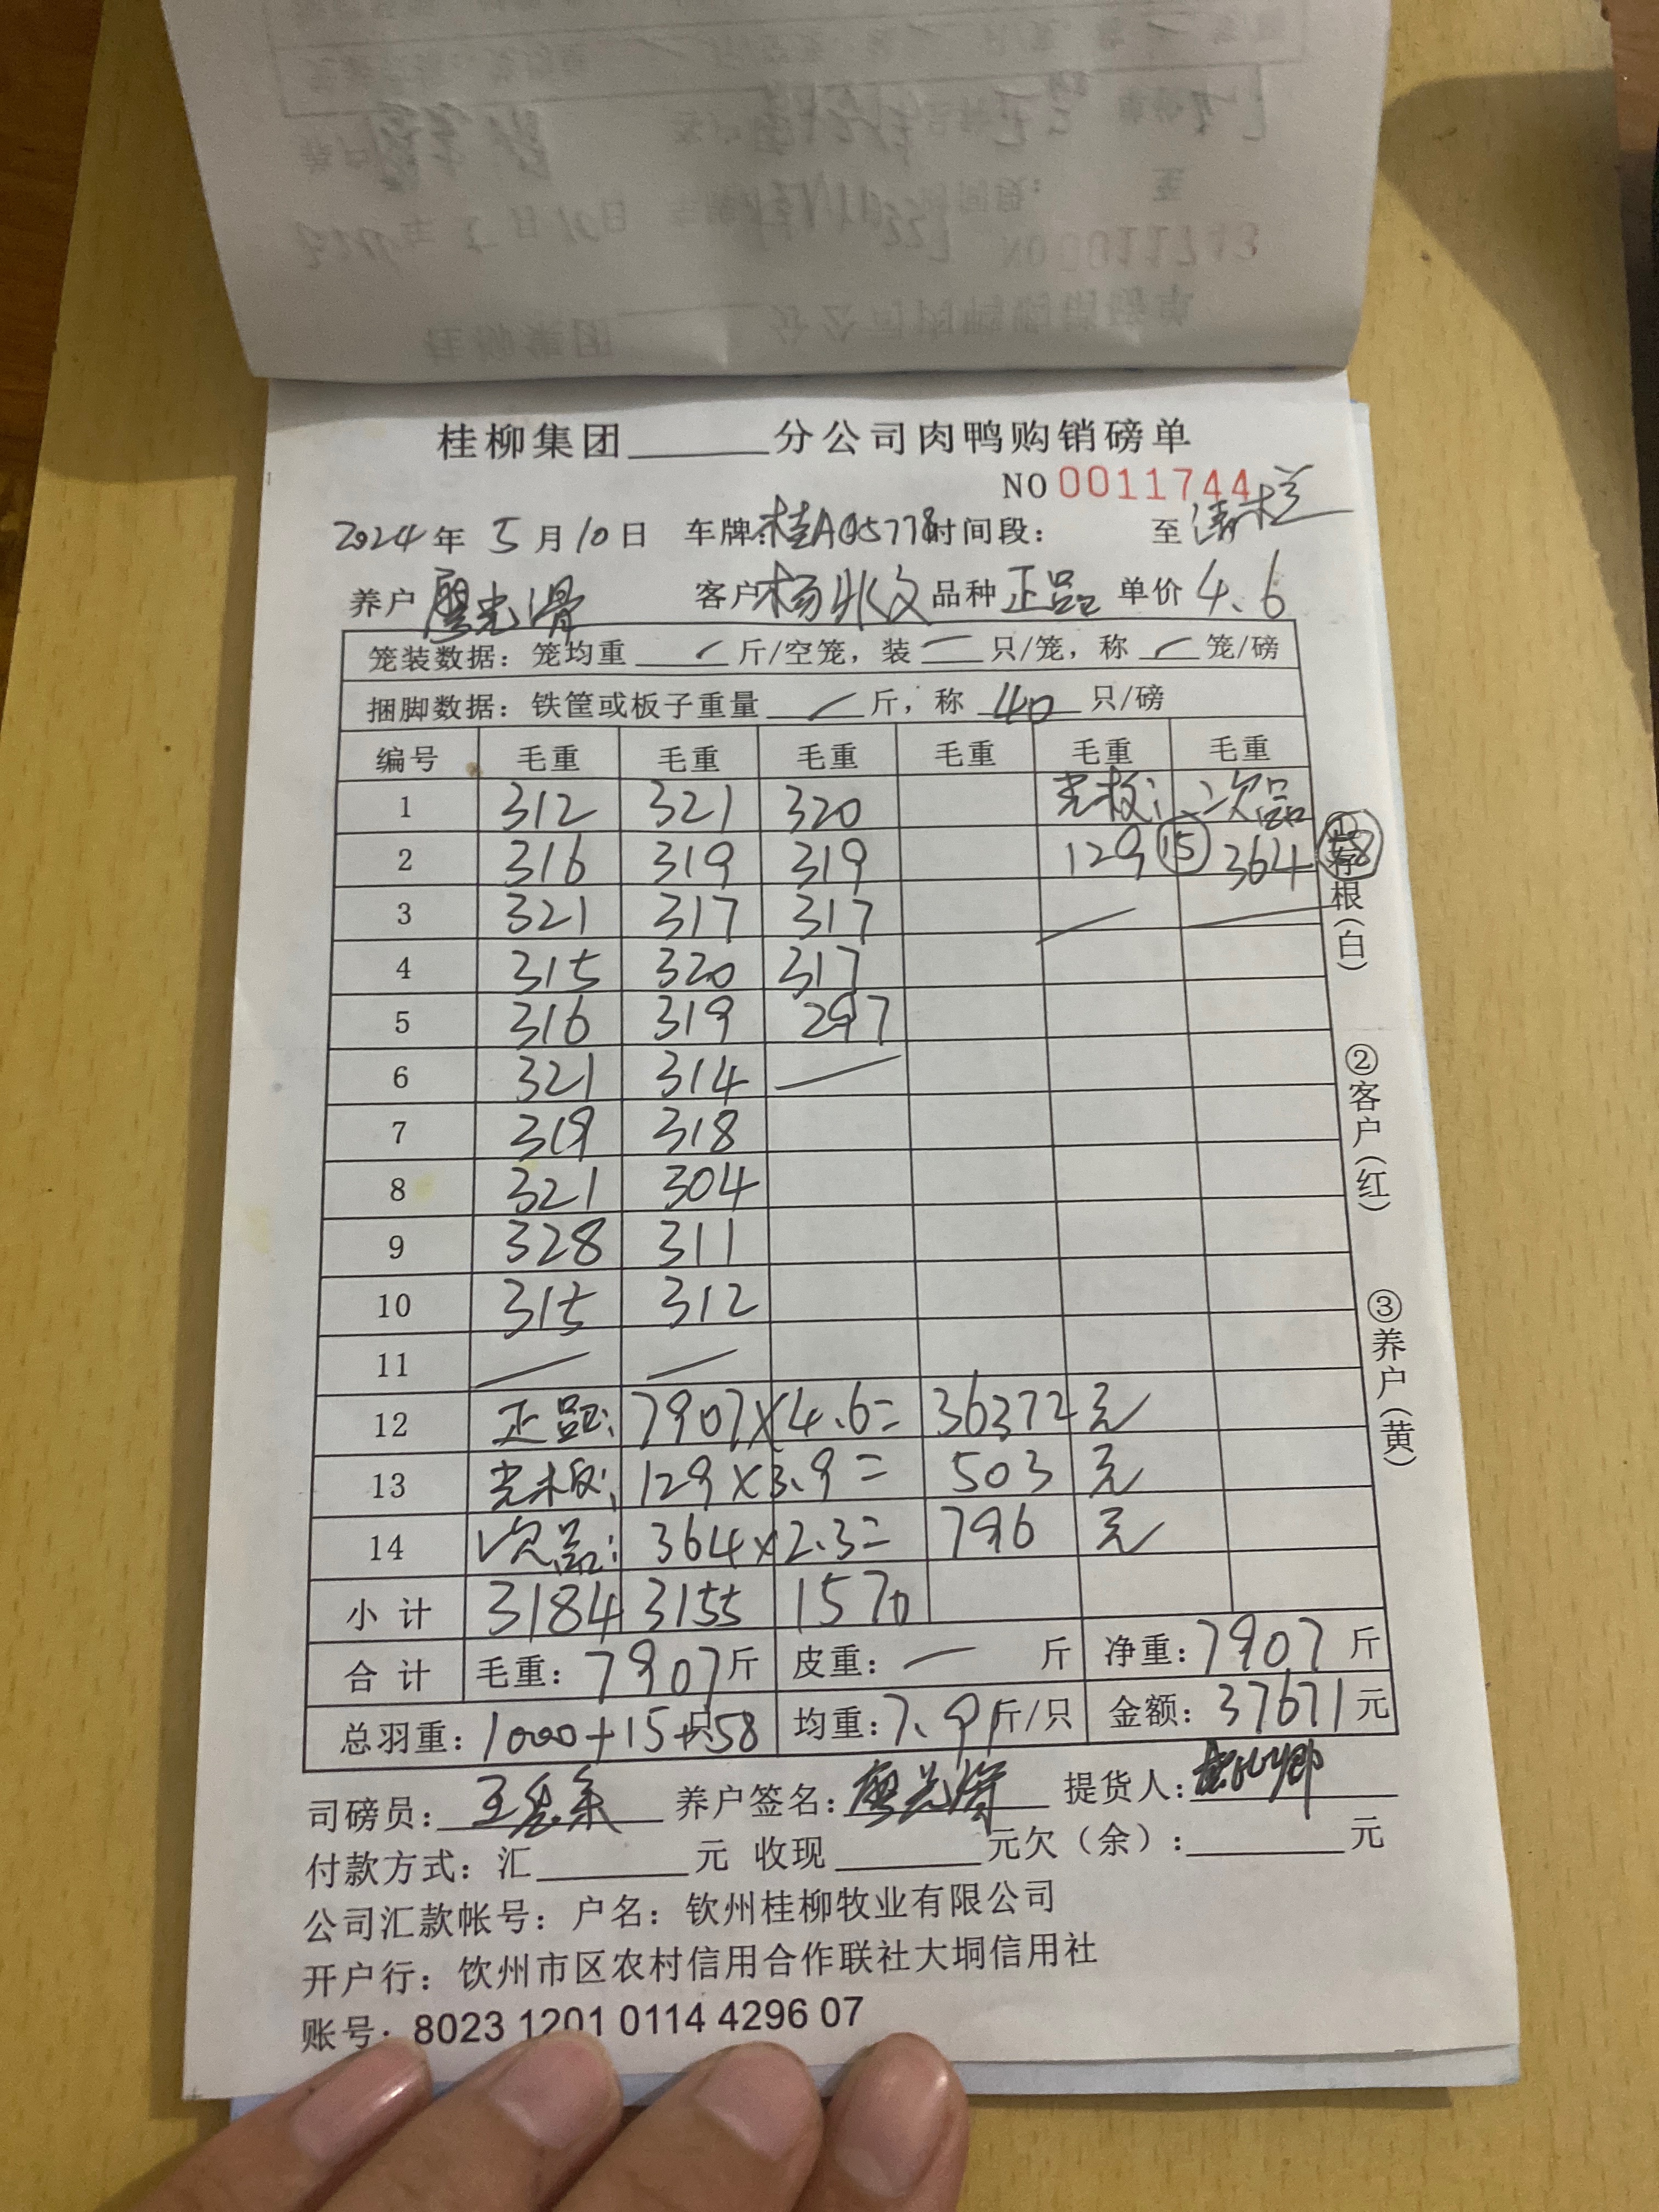 桂柳集团______分公司肉鸭购销磅单
NO 0011744
2024年 5月10日 车牌:桂A05778 时间段: 至 清栏
养户 廖光 客户 杨 品种 正品 单价 4.6
笼装数据：笼均重 — 斤/空笼，装 — 只/笼，称 — 笼/磅
捆脚数据：铁筐或板子重量 — 斤，称 40 只/磅
编号 毛重 毛重 毛重 毛重 毛重 毛重
1 312 321 320 光板: 次品
2 316 319 319 129 ⑮ 364 58
3 321 317 317
4 315 320 317
5 316 319 297
6 321 314
7 319 318
8 321 304
9 328 311
10 315 312
11
12 正品: 7907×4.6= 36372 元
13 光板: 129×3.9= 503 元
14 次品: 364×2.3= 796 元
小计 3184 3155 1570
合计 毛重: 7907斤 皮重: — 斤 净重: 7907 斤
总羽重: 1000+15+58 只 均重: 7.9斤/只 金额: 37671元
司磅员: 王 养户签名: 廖光 提货人:
付款方式: 汇______元 收现______元欠（余）:______元
公司汇款帐号: 户名: 钦州桂柳牧业有限公司
开户行: 钦州市区农村信用合作联社大垌信用社
账号: 8023 1201 0114 4296 07
①存根(白)
②客户(红)
③养户(黄)